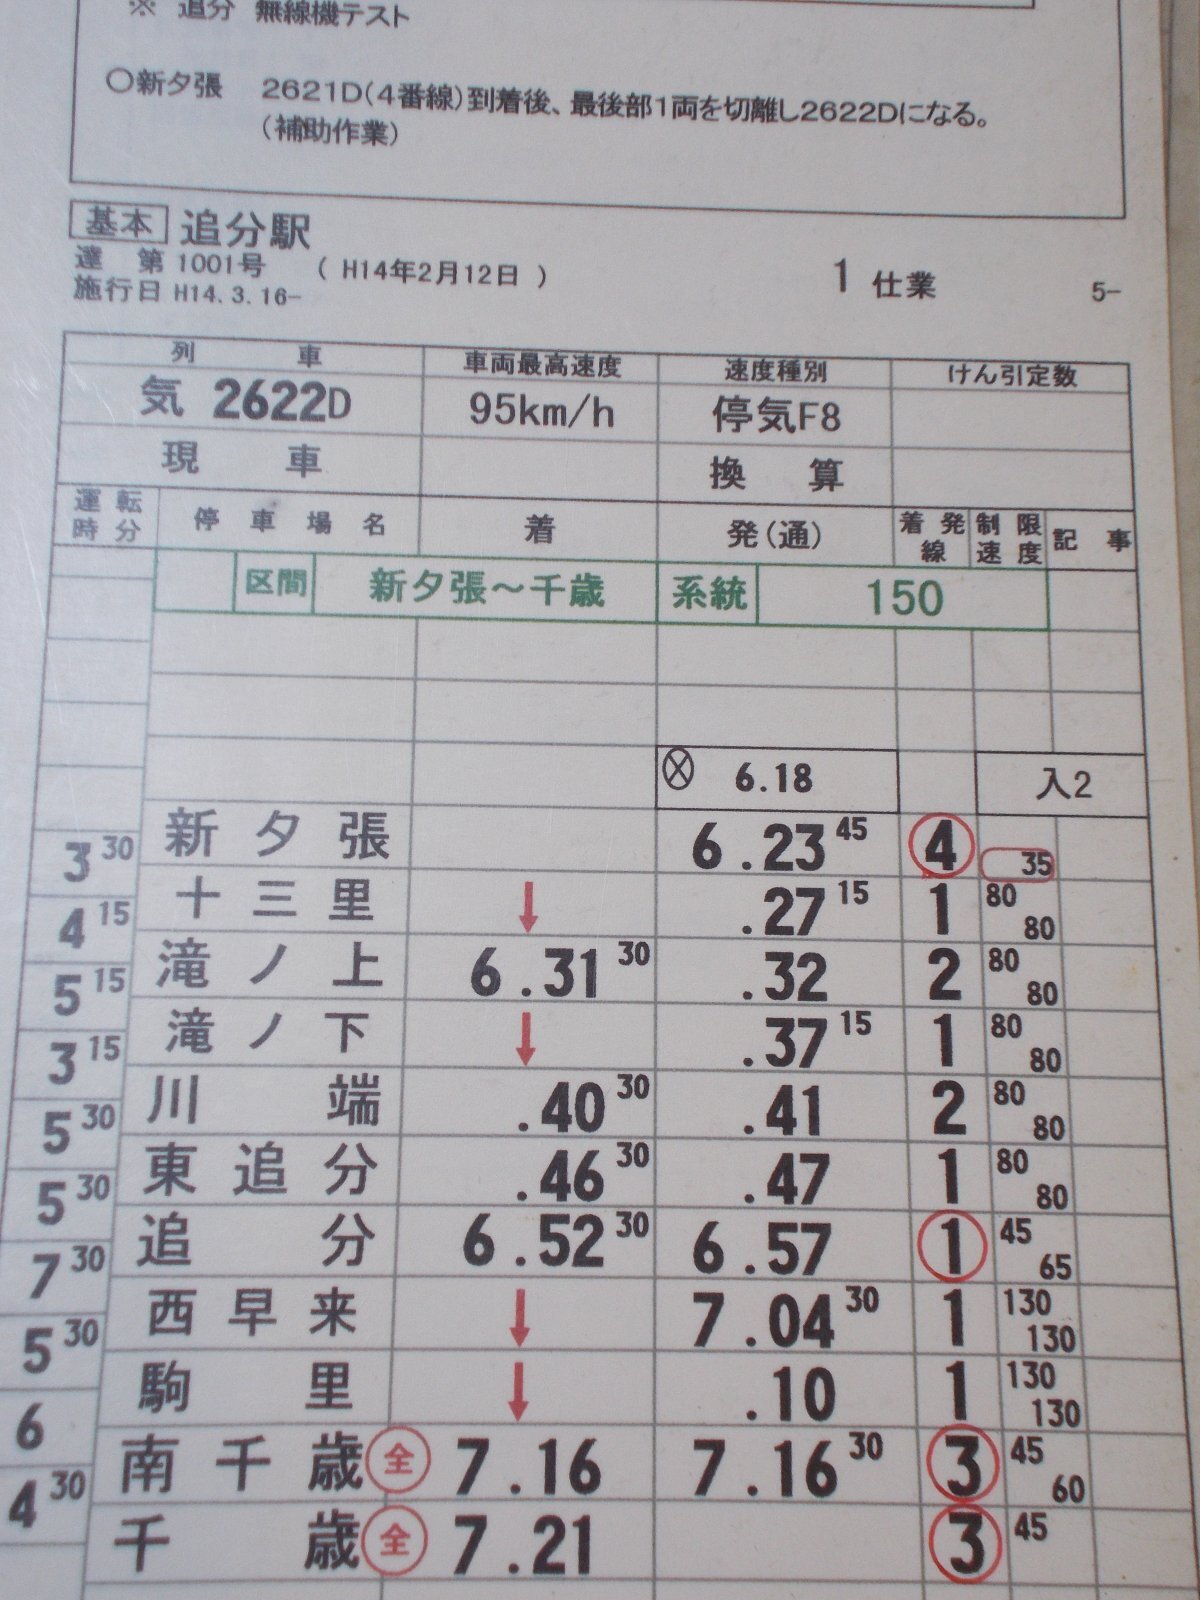 ※ 追分 無線機テスト
○新夕張 2621D(4番線)到着後、最後部1両を切離し2622Dになる。
(補助作業)
基本 追分駅
達 第 1001号 ( H14年2月12日 )
施行日 H14.3.16-
1 仕業 5-
列 車 車両最高速度 速度種別 けん引定数
気 2622D 95km/h 停気F8
現 車 換 算
運転時分 停車場名 着 発(通) 着発線 制限速度 記事
区間 新夕張～千歳 系統 150
Ⓧ 6.18 入2
新夕張 6.23 45 ④ 35
3 30
十三里 ↓ .27 15 1 80 80
4 15
滝ノ上 6.31 30 .32 2 80 80
5 15
滝ノ下 ↓ .37 15 1 80 80
3 15
川端 .40 30 .41 2 80 80
5 30
東追分 .46 30 .47 1 80 80
5 30
追分 6.52 30 6.57 ① 45 65
7 30
西早来 ↓ 7.04 30 1 130 130
5 30
駒里 ↓ .10 1 130 130
6
南千歳 全 7.16 7.16 30 ③ 45 60
4 30
千歳 全 7.21 ③ 45